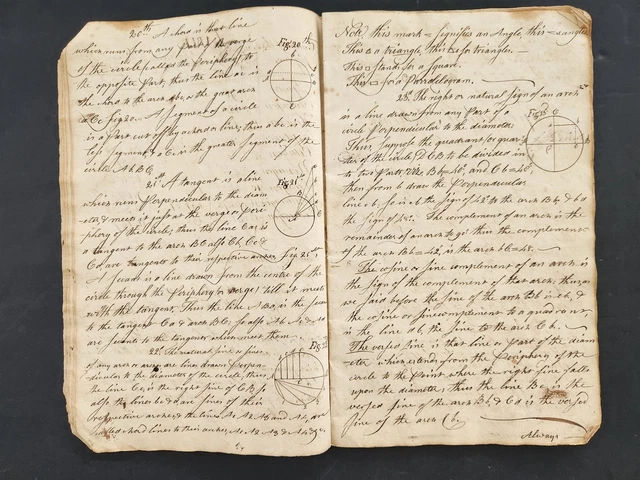 20th A chord is that line
which runs from any part of the verge
of the circle called the Periphery to
the opposite Part, thus the line ac is
the chord to the arch abc, & the great arch
Fig 20. A segment of a circle
is a Part cut off by a chord or line, thus a bc is the
less segment & a c is the greater segment of the
circle A b B C
Fig. 20th
21st A tangent is a line
which runs Perpendicular to the diam
eter & meets it just at the verge or peri
phery of the circle, thus the line Ca is
a tangent to the arch BC also Cb, C &
Cd, are tangents to their respective arches Fig. 21st
A secant is a line drawn from the centre of the
circle through the Periphery or verge till it meets
with the tangent, Thus the line ABa, is the secant
to the tangent Ca & arch BC; so also Ab, Ac, &
are secants to the tangents which meet them
Fig. 21st
22d The natural sine or sines,
of any arch or arches are lines drawn perpen
dicular to the diameter of the circle, thus
the line C is the right sine of C B, so
also the lines & are sines of their
respective arches, & the lines A1 A2 A3 and A4 are
called chord lines to their arches, A1 A2 A3 & A4
Fig. 22
Note, this mark = signifies an Angle, this = angles
This is a triangle, this is for triangles
This stand for a square.
This for a Parallelogram.
23. The right or natural sign of an arch
is a line drawn from any Part of a
circle Perpendicular to the diameter
Thus suppose the quadrant or quar
ter of the circle, C B to be divided in
to two Parts, Bb = 42°, and Cb = 48°,
then from b draw the Perpendicular
line , so is the sign of 42° to the arch Bb, & b d
the sign of 48°. The complement of an arch is the
remainder of an arch to 90, thus the complement
of the arch Bb = 42, is the arch Cb = 48.
Fig 23
The cosine or sine complement of an arch is
the sign of the complement of that arch, thus as
we said before the sine of the arch Bb is , &
the cosine or sine complement to a quadrant
is the line d b, the sine to the arch C b.
The versed sine is that line or part of the diam
eter which extends from the Periphery of the
circle to the Point where the right sine falls
upon the diameter, thus the line B is the
versed sine of the arch Bb, & Cd is the versed
sine of the arch C b.
Always